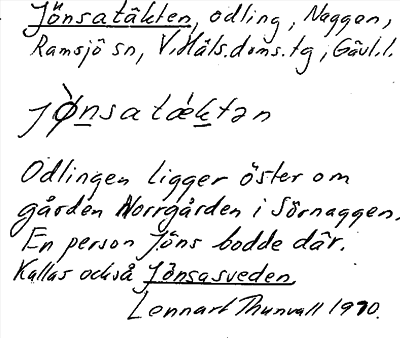 Jönsatäkten, odling, Naggen,
Ramsjö sn, V. Häls. doms. tg, Gävl. l.
jø̀nsatǽktən
Odlingen ligger öster om
gården Norrgården i Sörnaggen.
En person Jöns bodde där.
Kallas också Jönsasveden.
Lennart Thunvall 1970.